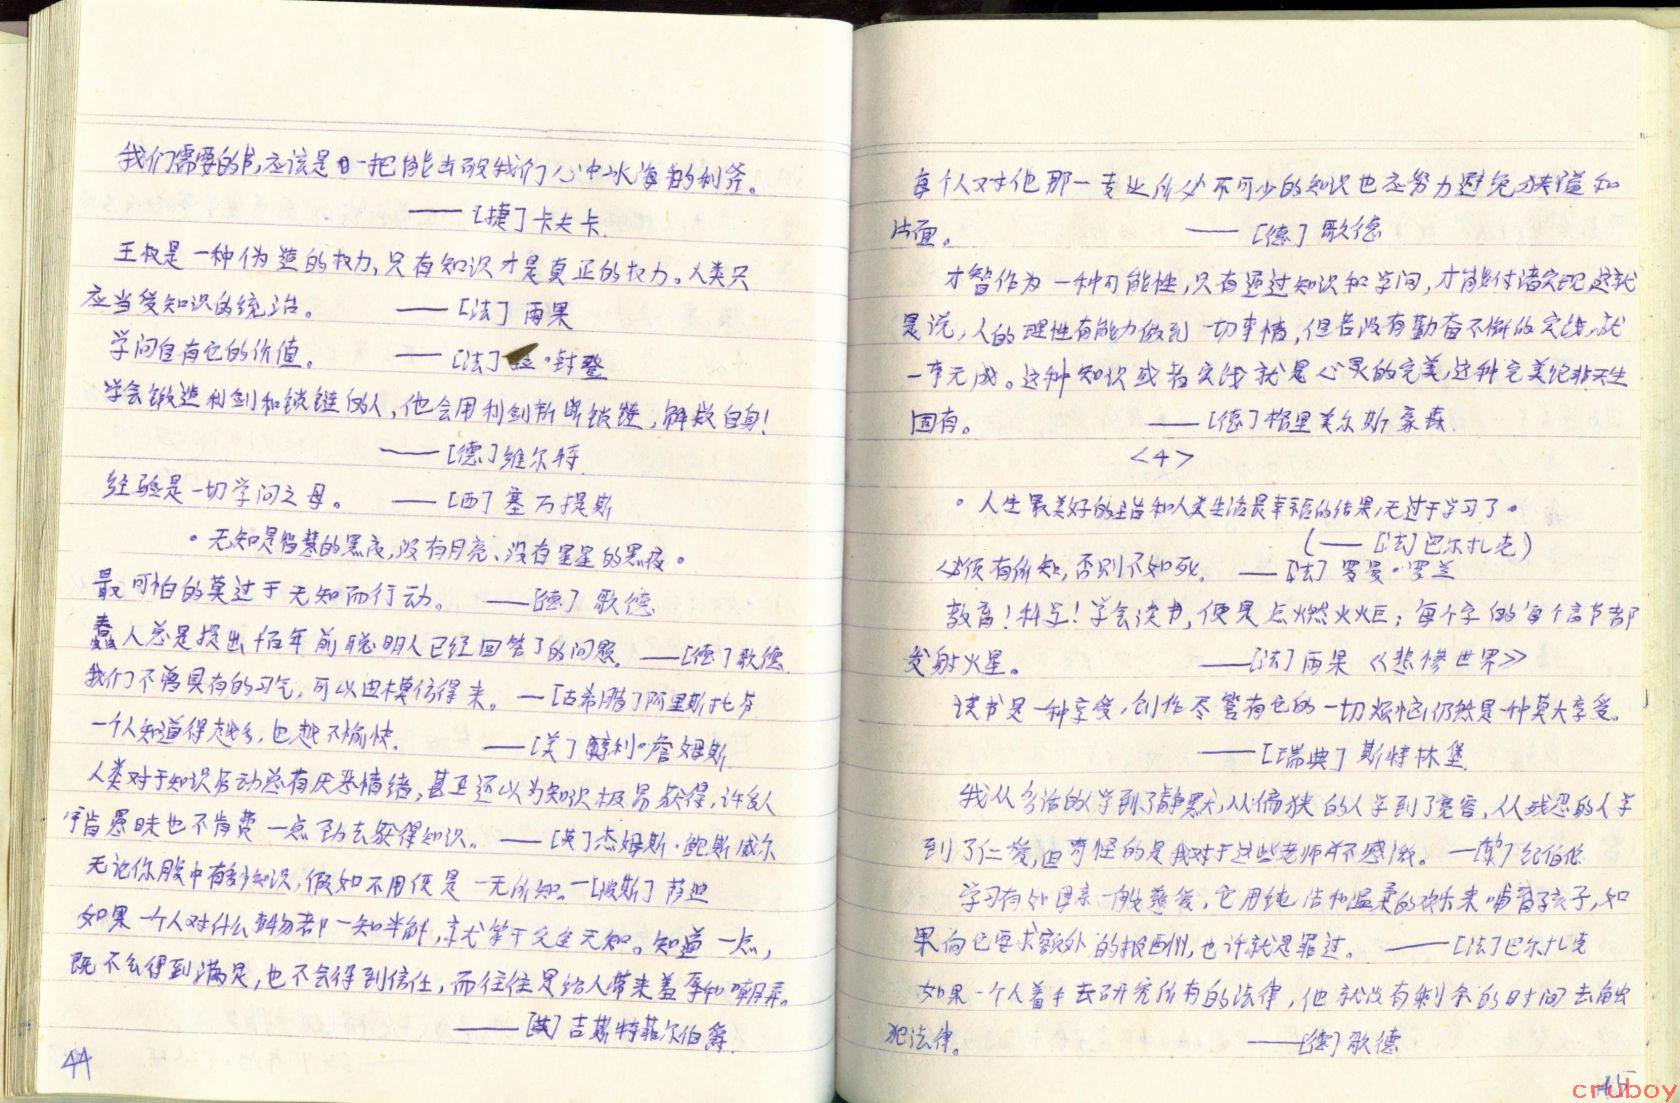 我们需要的书,应该是一把能击破我们心中冰海的利斧。
——[捷]卡夫卡.
王权是一种伪造的权力,只有知识才是真正的权力。人类只
应当受知识的统治。 ——[法]雨果
学问自有它的价值。 ——[法] ·封登
学会锻造利剑和锁链的人,他会用利剑斩断锁链,解救自身!
——[德]维尔特.
经验是一切学问之母。 ——[西]塞万提斯
·无知是智慧的黑夜,没有月亮、没有星星的黑夜·
最可怕的莫过于无知而行动。 ——[德]歌德
蠢人总是提出千百年前聪明人已经回答了的问题. ——[德]歌德.
我们不曾具有的习气,可以由模仿得来。—[古希腊]阿里斯托芬
一个人知道得越多,也越不愉快. ——[美]亨利·詹姆斯
人类对于知识劳动总有厌恶情绪;甚至还以为知识极易获得,许多人
宁肯愚昧也不肯费一点劲去获得知识。——[英]杰姆斯·鲍斯威尔
无论你腹中有多少知识,假如不用便是一无所知。—[波斯]萨迪
如果一个人对什么事物都一知半解,就等于完全无知。知道一点,
既不会得到满足,也不会得到信任,而往往是给人带来羞辱和嘲弄。
——[英]吉斯特菲尔伯爵.
44
每个人对他那一专业所必不可少的知识也应努力避免狭隘和
片面。 ——[德]歌德
才智作为一种可能性,只有通过知识和学问,才能付诸实现,这就
是说,人的理性有能力做到一切事情,但若没有勤奋不懈的实践,就
一事无成。这种知识或者实践就是心灵的完美,这种完美绝非天生
固有。 ——[德]格里美尔斯豪森.
<4>
·人生最美好的主旨和人类生活最幸福的结果,无过于学习了·
(——[法]巴尔扎克)
必须有所知,否则不如死. —[法]罗曼·罗兰
教育!科学!学会读书,便是点燃火炬;每个字的每个音节都
发射火星。 ——[法]雨果《悲惨世界》
读书是一种享受,创作尽管有它的一切烦恼,仍然是一种莫大享受。
——[瑞典]斯特林堡.
我从多话的人学到了静默,从偏狭的人学到了宽容,从残忍的人学
到了仁爱,但奇怪的是我对于这些老师并不感激。—[黎]纪伯伦
学习有如母亲一般慈爱,它用纯洁和温柔的欢乐来哺育孩子,如
果向它要求额外的报酬,也许就是罪过。 ——[法]巴尔扎克
如果一个人着手去研究所有的法律,他就没有剩余的时间去触
犯法律。 ——[德]歌德
45
cruboy